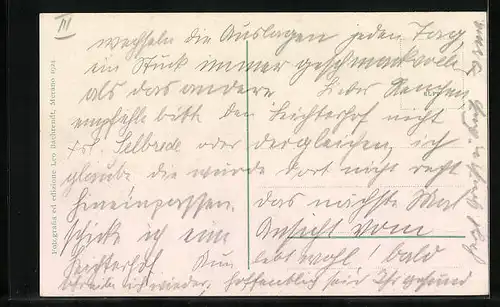 III
wechseln die Auslagen jeden Tag,
ein Stück immer geschmackvoller
als das andere.
empfehle bitte den Leichterhof nicht
Frl. Selbrede oder dergleichen, ich
glaube die würde dort nicht recht
hineinpassen. Das nächste Mal
schicke ich eine Ansicht vom
Leichterhof Nun lebt wohl! bald
schreibe ich wieder, hoffentlich seid Ihr gesund
Fotografia ed edizione Leo Baehrendt, Merano 1924